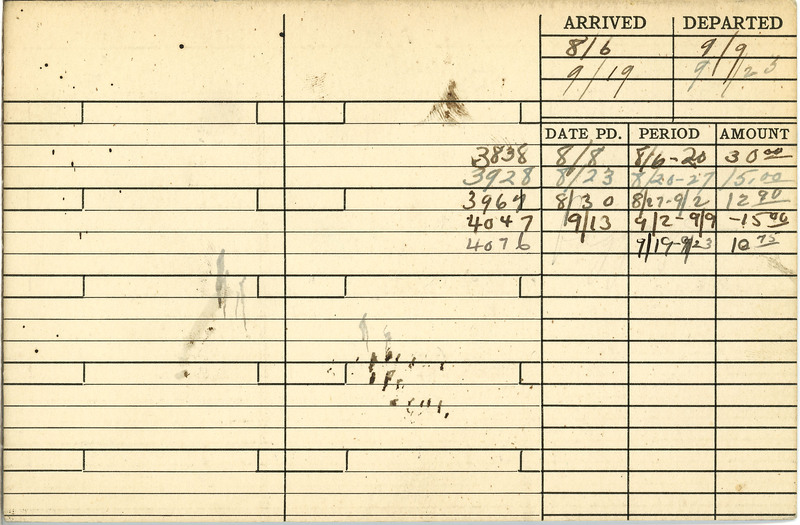 ARRIVED DEPARTED
8/6 9/9
9/19 9/23
DATE PD. PERIOD AMOUNT
3838 8/8 8/6-20 30 00
3928 8/23 8/20-27 15.00
3967 8/30 8/27-9/2 12 90
4047 9/13 9/2-9/9 -15 00
4076 9/19-9/23 10 75